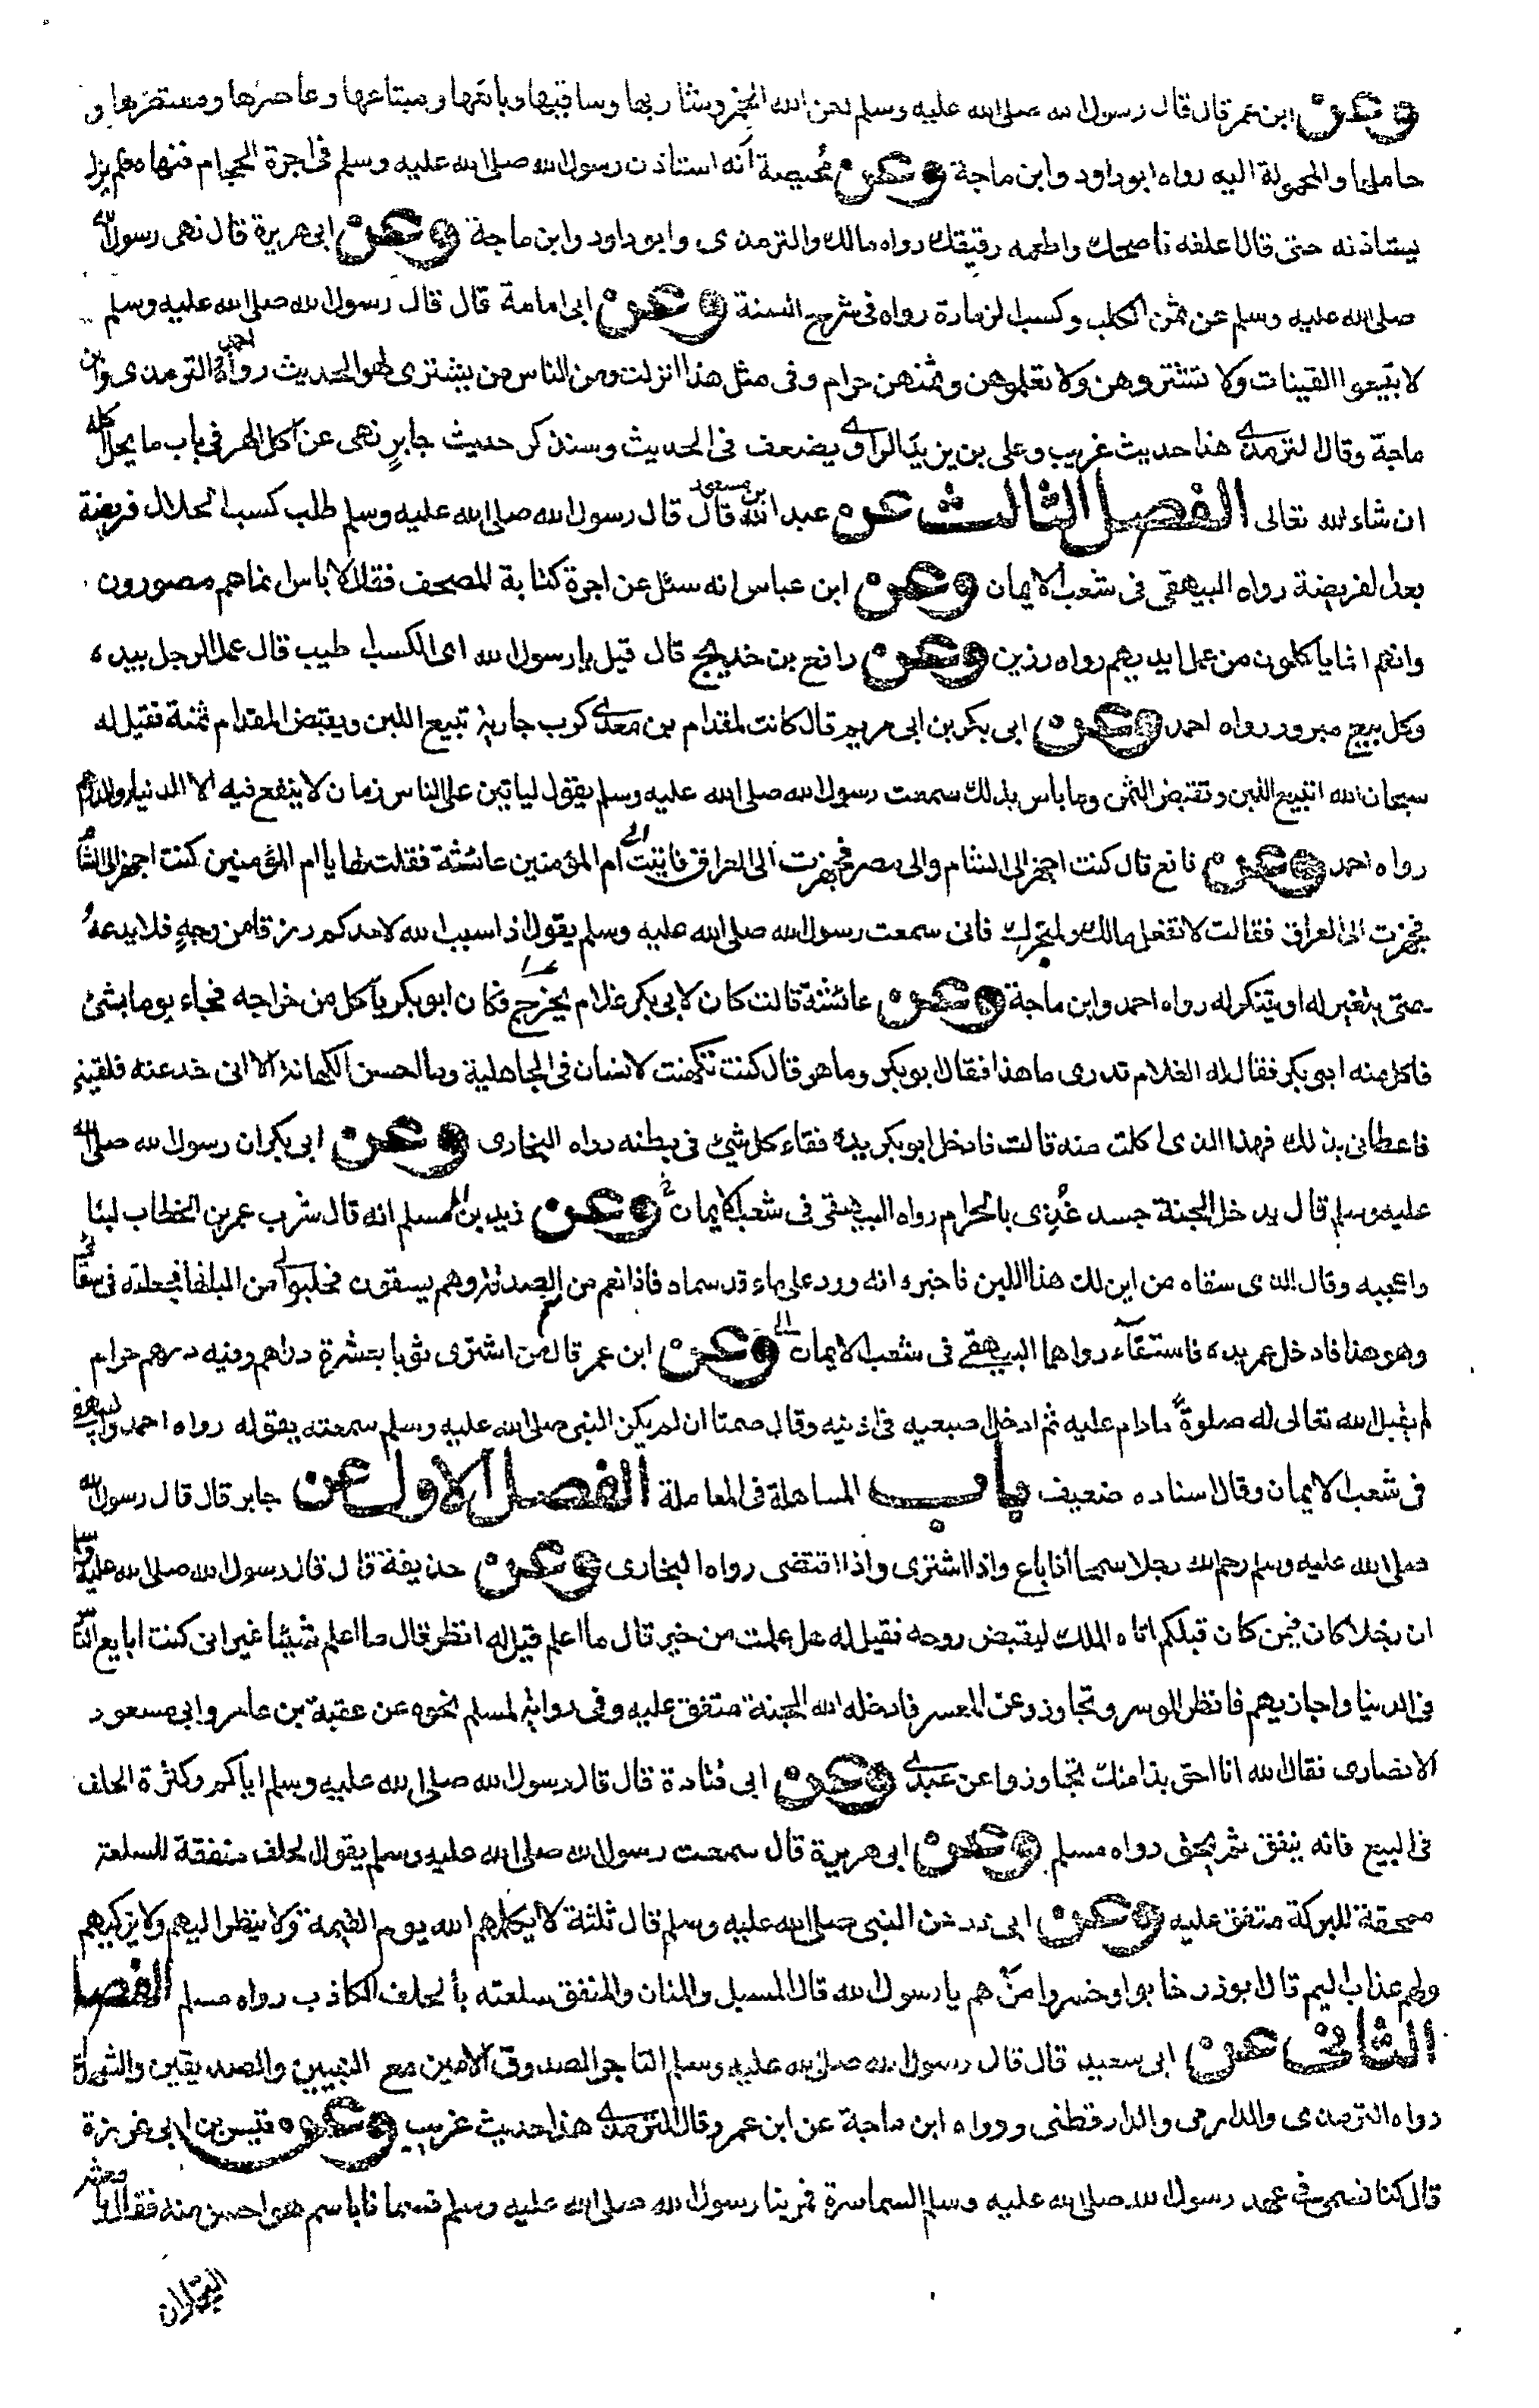 وعن ابن عمر قال قال رسول الله صلى الله عليه وسلم لعن الله الخمر وشاربها وساقيها وبائعها ومبتاعها وعاصرها ومعتصرها و
حاملها والمحمولة اليه رواه ابو داود وابن ماجة وعن محيصة انه استاذن رسول الله صلى الله عليه وسلم في اجرة الحجام فنهاه فلم يزل
يستاذنه حتى قال اعلفه ناضحك واطعمه رقيقك رواه مالك والترمذى وابو داود وابن ماجة وعن ابى هريرة قال نهى رسول الله
صلى الله عليه وسلم عن ثمن الكلب وكسب الزمارة رواه فى شرح السنة وعن ابى امامة قال قال رسول الله صلى الله عليه وسلم
لا تبيعوا القينات ولا تشتروهن ولا تعلموهن وثمنهن حرام وفى مثل هذا انزلت ومن الناس من يشترى لهو الحديث رواه احمد والترمذى وابن
ماجة وقال الترمذى هذا حديث غريب وعلى بن يزيد الراوى يضعف فى الحديث وسنذكر حديث جابر نهى عن اكل الهر فى باب ما يحل اكله
ان شاء الله تعالى الفصل الثالث عن عبد الله بن مسعود قال قال رسول الله صلى الله عليه وسلم طلب كسب الحلال فريضة
بعد الفريضة رواه البيهقى فى شعب الايمان وعن ابن عباس انه سئل عن اجرة كتابة المصحف فقال لا باس انما هم مصورون
وانهم انما ياكلون من عمل ايديهم رواه رزين وعن رافع بن خديج قال قيل يا رسول الله اى الكسب اطيب قال عمل الرجل بيده
وكل بيع مبرور رواه احمد وعن ابى بكر بن ابى مريم قال كانت لمقدام بن معدى كرب جارية تبيع اللبن ويقبض المقدام ثمنه فقيل له
سبحان الله اتبيع اللبن وتقبض الثمن وما باس بذلك سمعت رسول الله صلى الله عليه وسلم يقول لياتين على الناس زمان لا ينفع فيه الا الدينار والدرهم
رواه احمد وعن نافع قال كنت اجهز الى الشام والى مصر فجهزت الى العراق فاتيت الى ام المؤمنين عائشة فقلت لها يا ام المؤمنين كنت اجهز الى الشام
فجهزت الى العراق فقالت لا تفعل مالك ولمتجرك فانى سمعت رسول الله صلى الله عليه وسلم يقول اذا سبب الله لاحدكم رزقا من وجه فلا يدعه
حتى يتغير له او يتنكر له رواه احمد وابن ماجة وعن عائشة قالت كان لابى بكر غلام يخرج فكان ابو بكر ياكل من خراجه فجاء يوما بشئ
فاكل منه ابو بكر فقال له الغلام تدرى ما هذا فقال ابو بكر وما هو قال كنت تكهنت لانسان فى الجاهلية وما احسن الكهانة الا انى خدعته فلقينى
فاعطانى بذلك فهذا الذى اكلت منه قالت فادخل ابو بكر يده فقاء كل شئ فى بطنه رواه البخارى وعن ابى بكر ان رسول الله صلى الله
عليه وسلم قال لا يدخل الجنة جسد غذى بالحرام رواه البيهقى فى شعب الايمان وعن زيد بن اسلم انه قال شرب عمر بن الخطاب لبنا
واعجبه وقال للذى سقاه من اين لك هذا اللبن فاخبره انه ورد على ماء قد سماه فاذا نعم من نعم الصدقة وهم يسقون فحلبوا لى من البانها فجعلته فى سقائى
وهو هذا فادخل عمر يده فاستقاء رواهما البيهقى فى شعب الايمان وعن ابن عمر قال من اشترى ثوبا بعشرة دراهم وفيه درهم حرام
لم يقبل الله تعالى له صلوة ما دام عليه ثم ادخل اصبعيه فى اذنيه وقال صمتا ان لم يكن النبى صلى الله عليه وسلم سمعته يقوله رواه احمد والبيهقى
فى شعب الايمان وقال اسناده ضعيف باب المساهلة فى المعاملة الفصل الاول عن جابر قال قال رسول الله
صلى الله عليه وسلم رحم الله رجلا سمحا اذا باع واذا اشترى واذا اقتضى رواه البخارى وعن حذيفة قال قال رسول الله صلى الله عليه وسلم
ان رجلا كان فيمن كان قبلكم اتاه الملك ليقبض روحه فقيل له هل عملت من خير قال ما اعلم قيل له انظر قال ما اعلم شيئا غير انى كنت ابايع الناس
فى الدنيا واجازيهم فانظر الموسر وتجاوز وعن المعسر فادخله الله الجنة متفق عليه وفى رواية لمسلم نحوه عن عقبة بن عامر وابى مسعود
الانصارى فقال الله انا احق بذا منك تجاوزوا عن عبدى وعن ابى قتادة قال قال رسول الله صلى الله عليه وسلم اياكم وكثرة الحلف
فى البيع فانه ينفق ثم يمحق رواه مسلم وعن ابى هريرة قال سمعت رسول الله صلى الله عليه وسلم يقول الحلف منفقة للسلعة
ممحقة للبركة متفق عليه وعن ابى ذر عن النبى صلى الله عليه وسلم قال ثلثة لا يكلمهم الله يوم القيمة ولا ينظر اليهم ولا يزكيهم
ولهم عذاب اليم قال ابو ذر خابوا وخسروا من هم يا رسول الله قال المسبل والمنان والمنفق سلعته بالحلف الكاذب رواه مسلم الفصل
الثانى عن ابى سعيد قال قال رسول الله صلى الله عليه وسلم التاجر الصدوق الامين مع النبيين والصديقين والشهداء
رواه الترمذى والدارمى والدارقطنى ورواه ابن ماجة عن ابن عمر وقال الترمذى هذا حديث غريب وعن قيس بن ابى غرزة
قال كنا نسمى فى عهد رسول الله صلى الله عليه وسلم السماسرة فمر بنا رسول الله صلى الله عليه وسلم فسمانا باسم هو احسن منه فقال يا معشر
التجار ان